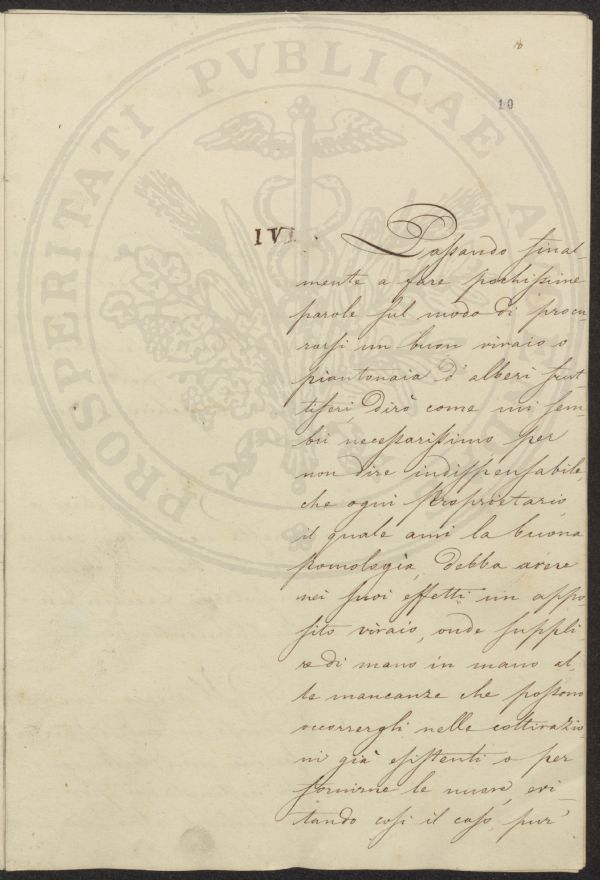 10
10
IVI.
Passando final-
mente a fare pochissime
parole sul modo di procu-
rarsi un buon vivaio o
piantonaia d'alberi frut
tiferi, dirò come mi sem-
bri necessarissimo per
non dire indispensabile,
che ogni Proprietario,
il quale ami la buona
Pomologia, debba avere
nei suoi effetti un appo
sito vivaio, onde suppli
re di mano in mano al
le mancanze che possono
occorrergli nelle coltivazio-
ni già esistenti o per
fornirne le nuove, evi-
tando così il caso, pur
PROSPERITATI PVBLICAE